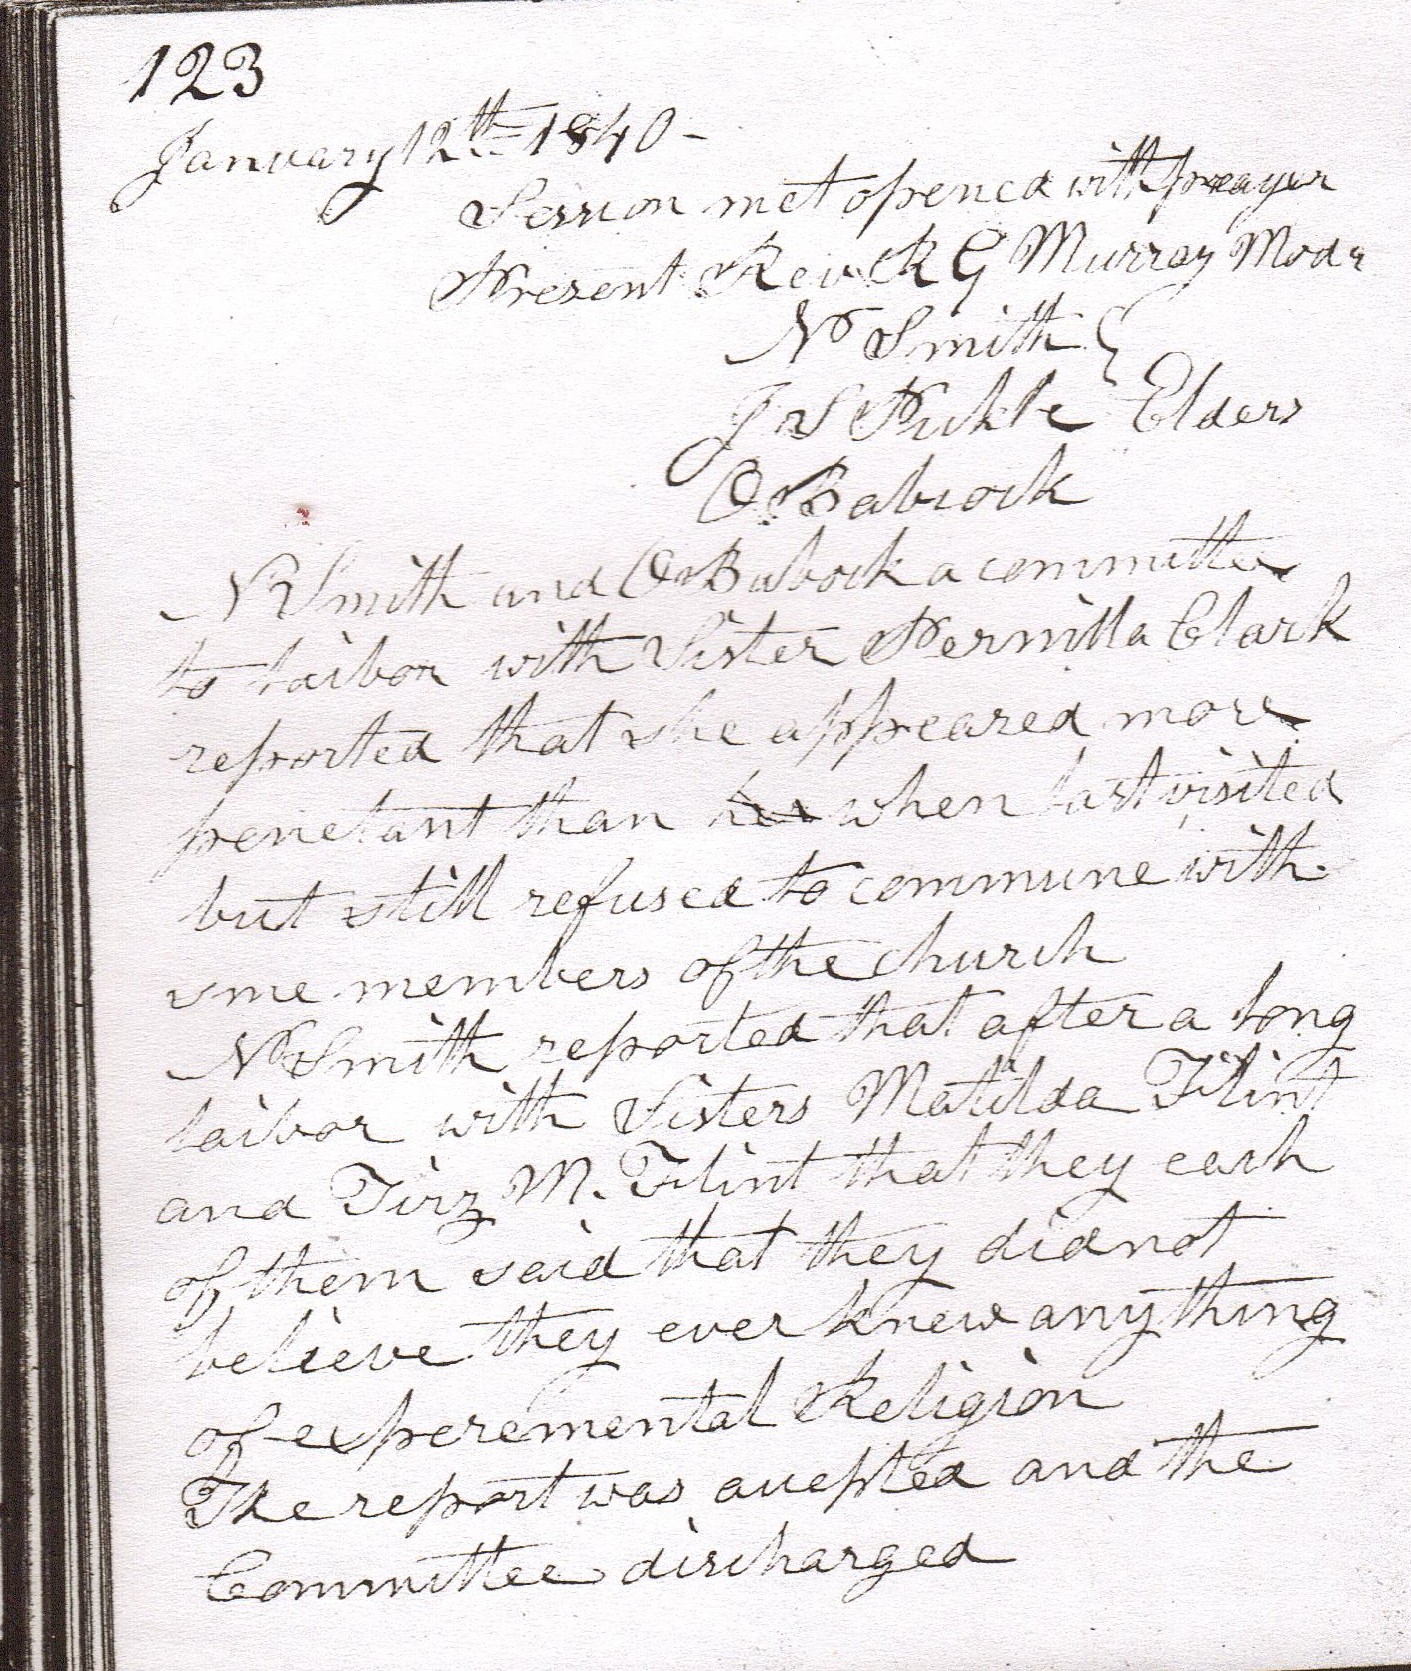 123
January 12th = 1840 -
Session met opened with prayer
Present Rev R G Murray Modr
N Smith
J S Elders
O Babcock
N Smith and O Babock a committee
to laibor with Sister Permilla Clark
reported that she appeared more
penetant than her when last visited
but still refused to commune with
sme members of the church
N Smith reported that after a long
laibor with Sisters Matilda Flint
and Tirz M. Flint that they each
of them said that they did not
believe they ever knew any thing
of experemental Religion
The report was acepted and the
Committee discharged